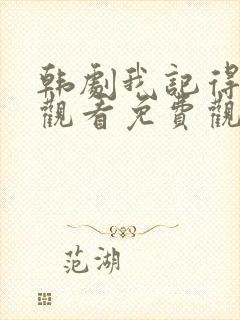 韩劇我記得
觀看免費觀
范湖